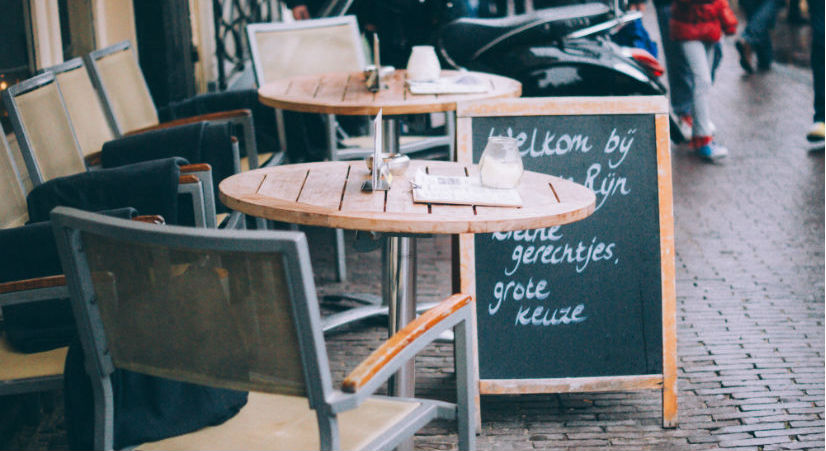 Welkom bij
Rijn
kleine
gerechtjes,
grote
keuze